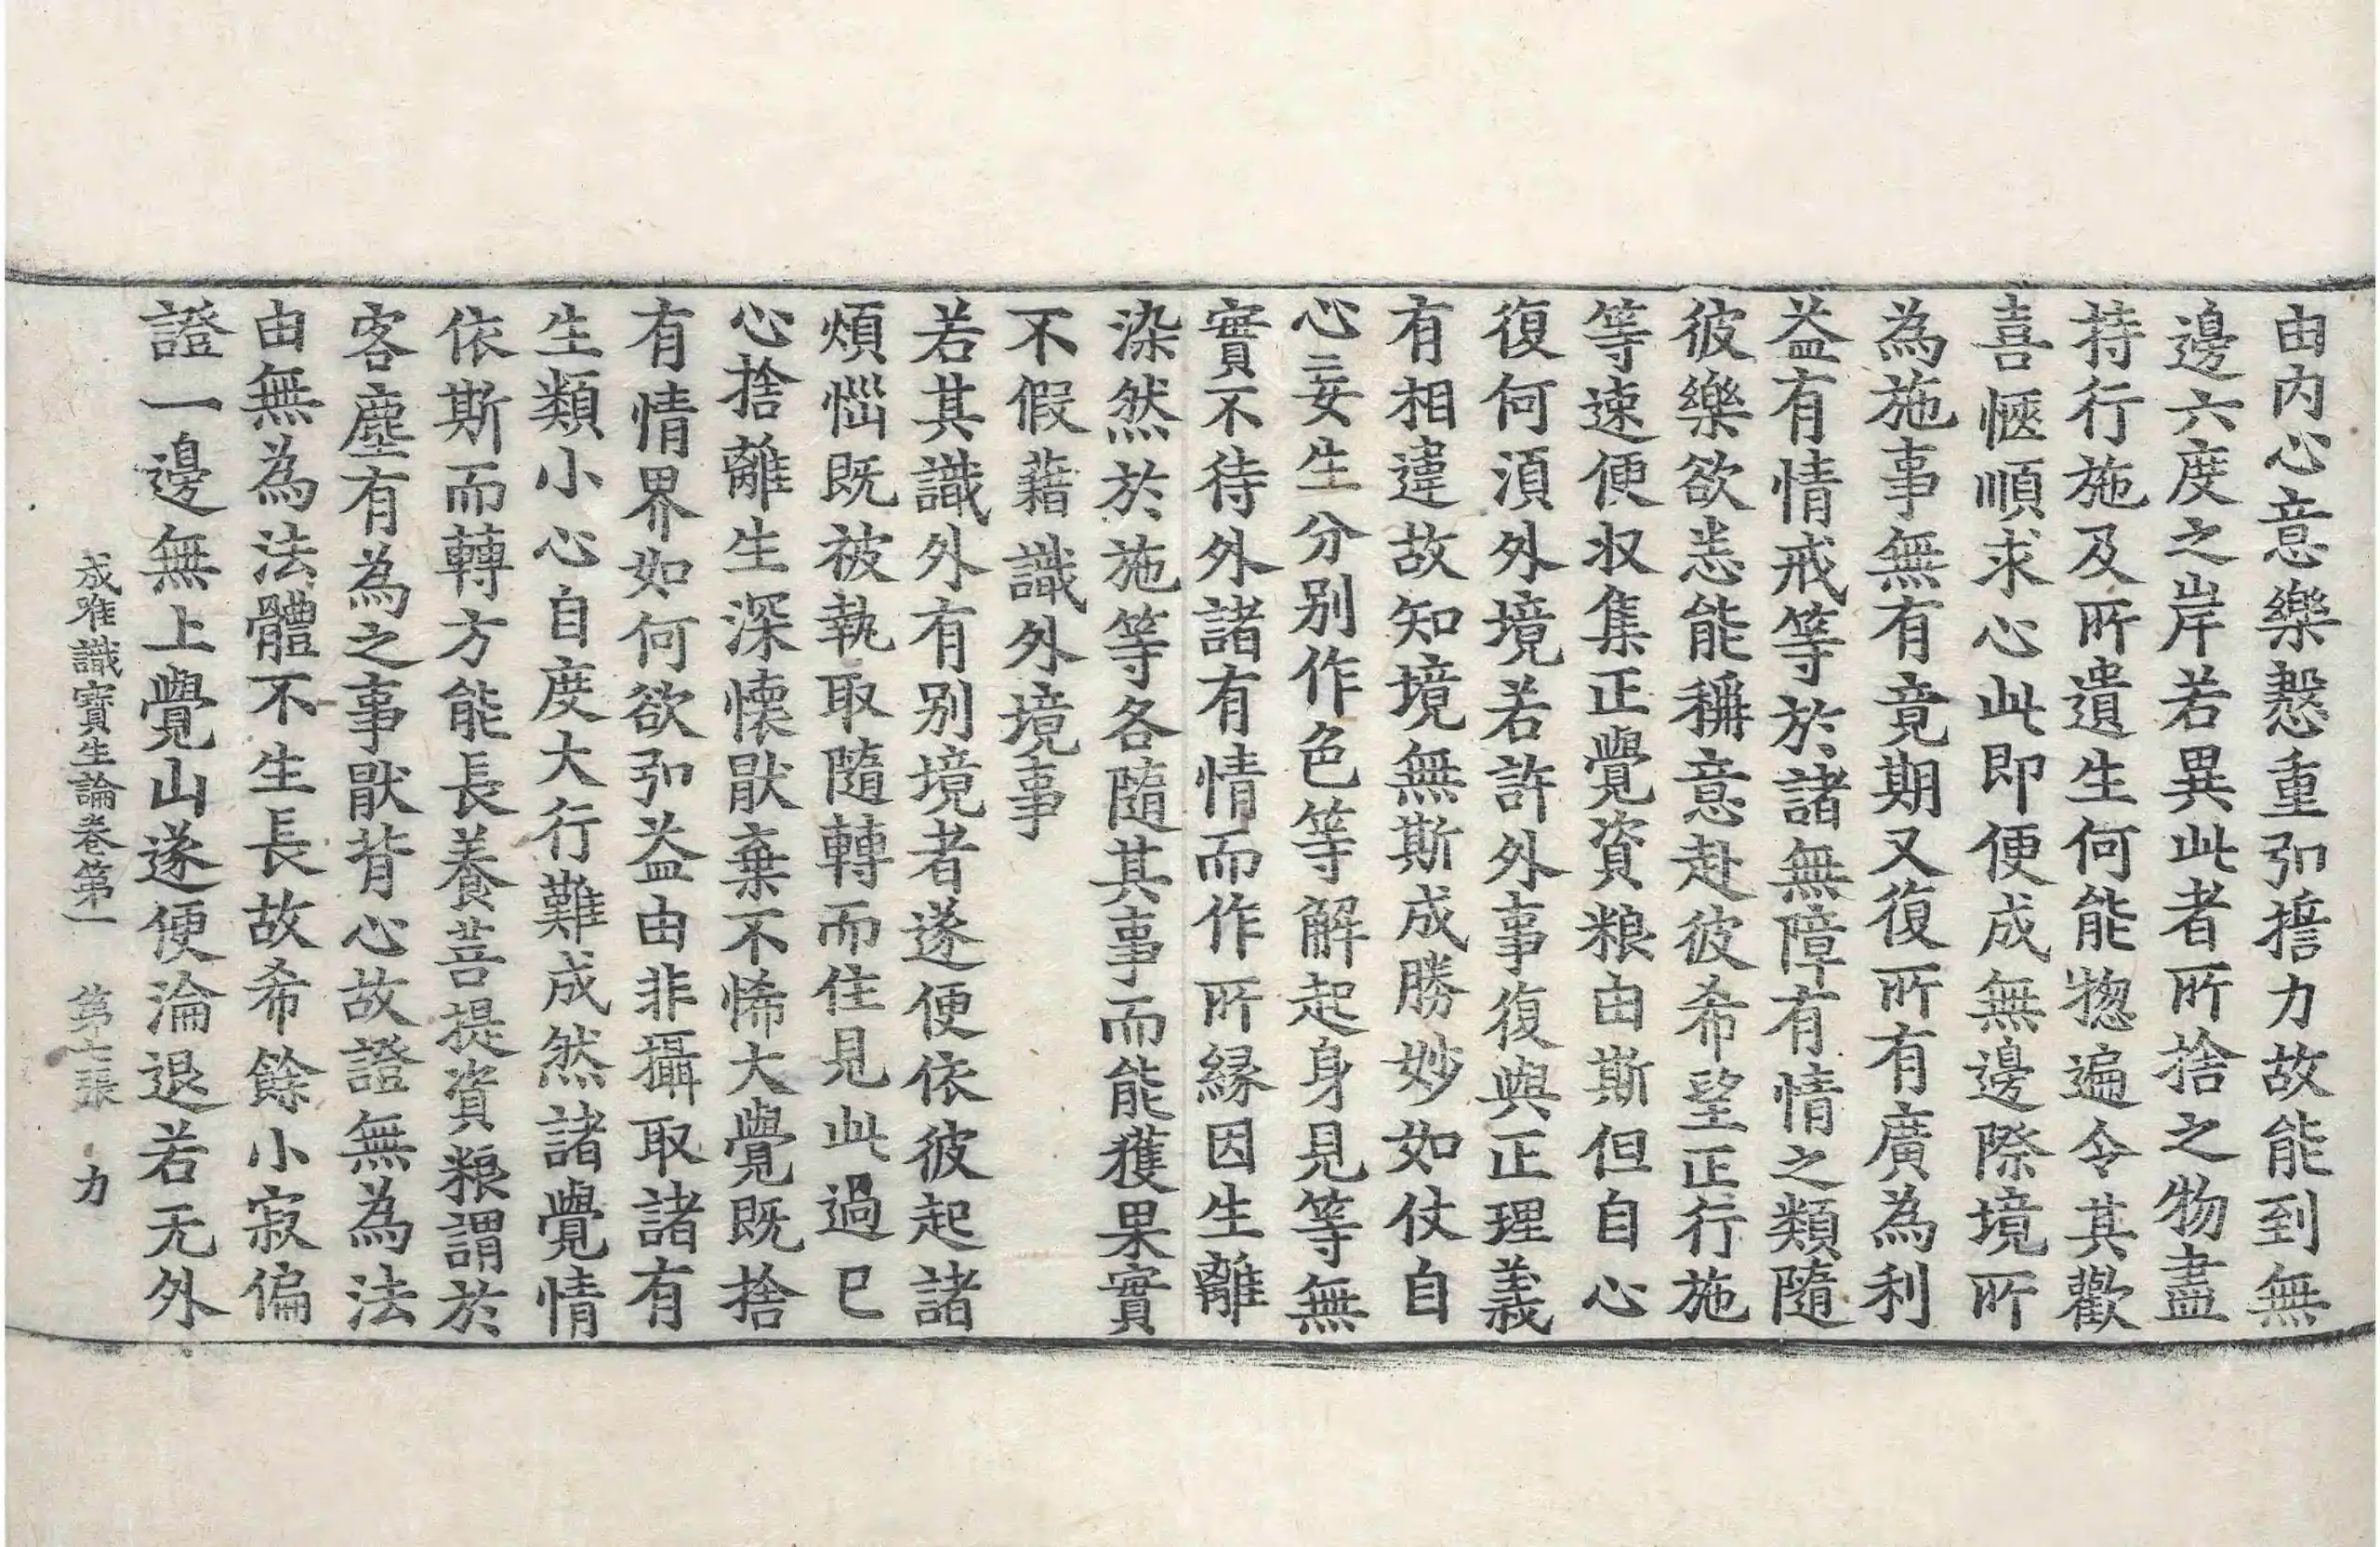 由内心意樂慇重引誓力故能到無
邊六度之岸若異此者所捨之物盡
持行施及所遺生何能惣遍令其歡
喜愜順求心此即便成無邊際境所
為施事無有竟期又復所有廣為利
益有情戒等於諸無障有情之類隨
彼樂欲恙能稱意赴彼希望正行施
等速便収集正覺資粮由斯但自心
復何湏外境若許外事復與正理義
有相違故知境無斯成勝妙如仗自
心二妄生分别作色等解起身見等無
實不待外諸有情而作所縁因生離
染然於施等各隨其事而能獲果實
不假藉識外境事
若其識外有别境者遂便依彼起諸
煩惱既被執取隨轉而住見此過已
心捨離生深懐猒棄不悕大覺既捨
有情界如何欲引益由非攝取諸有
生類小心自度大行難成然諸覺情
依斯而轉方能長養菩提資粮謂於
客塵有為之事猒背心故證無為法
由無為法體不生長故希餘小寂偏
證一邊無上覺山遂便淪退若无外
成唯識寶生論卷第一 第七張 力